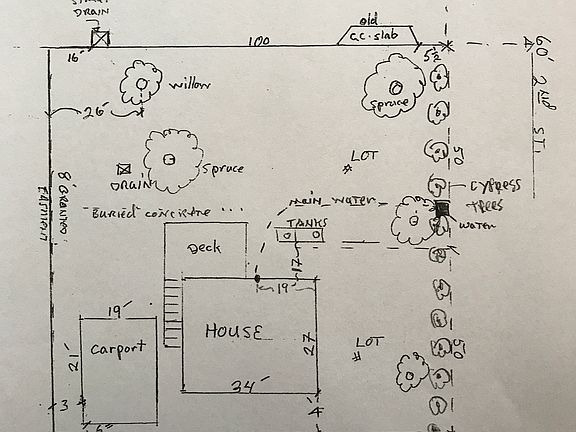 STORM
DRAIN
old
C.C. slab
100
16'
5½
60'
2ND ST.
willow
26'
Spruce
50
LOT
#
8' GRANTED
EASEMENT
DRAIN
Spruce
cypress
trees
main water
BURIED CONCRETE
TANKS
WATER
Deck
17
19'
HOUSE
27
LOT
#
50
19'
Carport
21'
34'
3
4